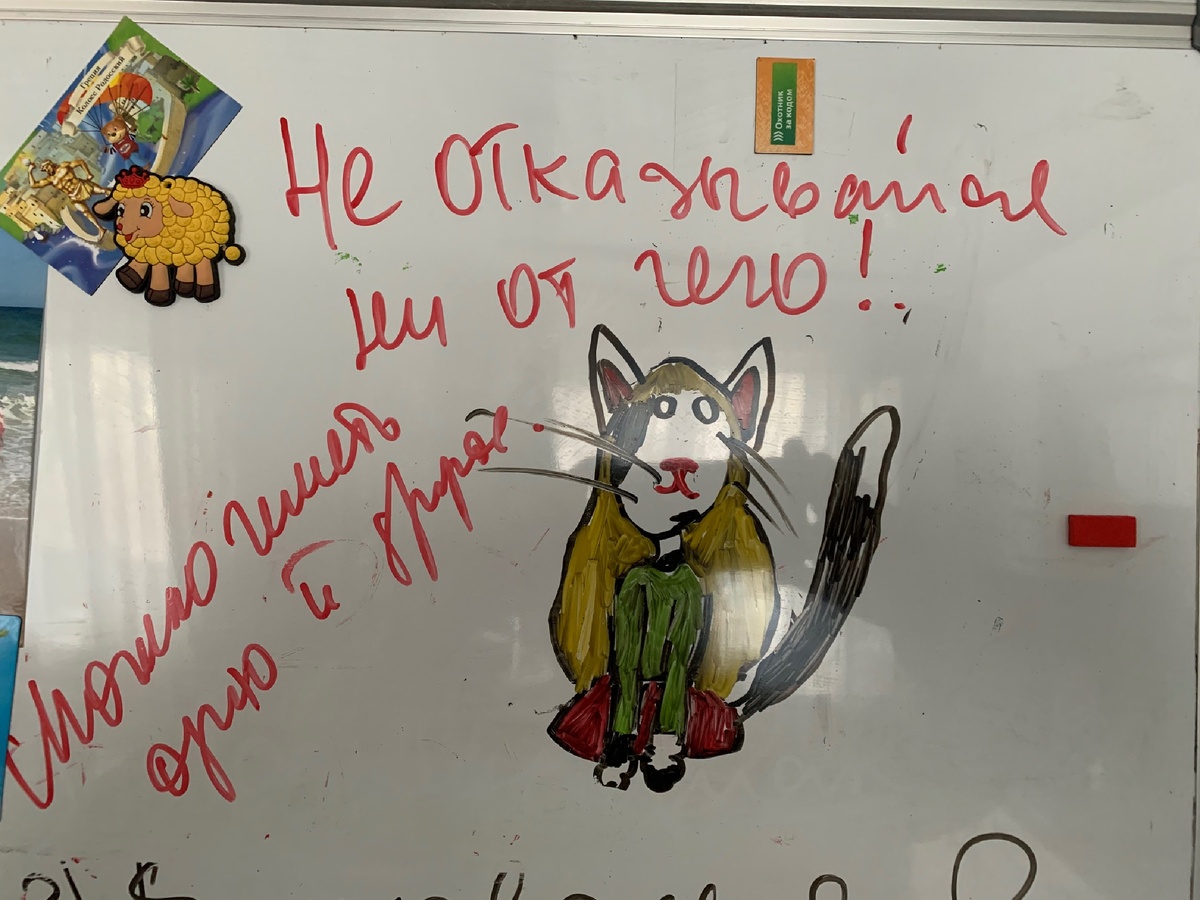 Греция
Колосс Родосский
))) Охотник
за кодом
Не отказывайся
ни от чего!..
Можно иметь
одно и другое.